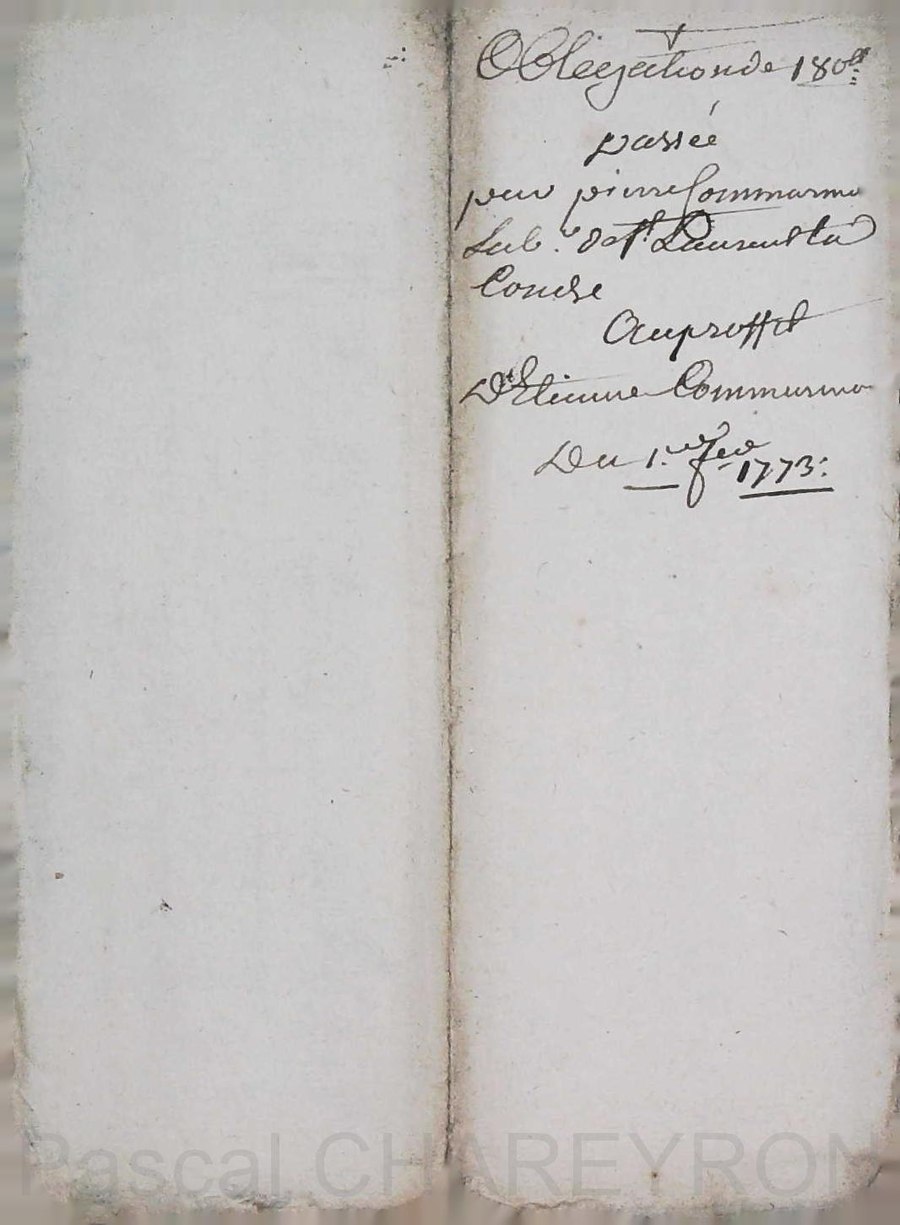 Obligation de 180ᵗᵗ
passée
par pierre Commarmo
Lab.ʳ de Sᵗ Laurent la
Conche
Au proffit
D'Etienne Commarmo
Du 1.ᵉʳ fev 1773:
Pascal CHAREYRON